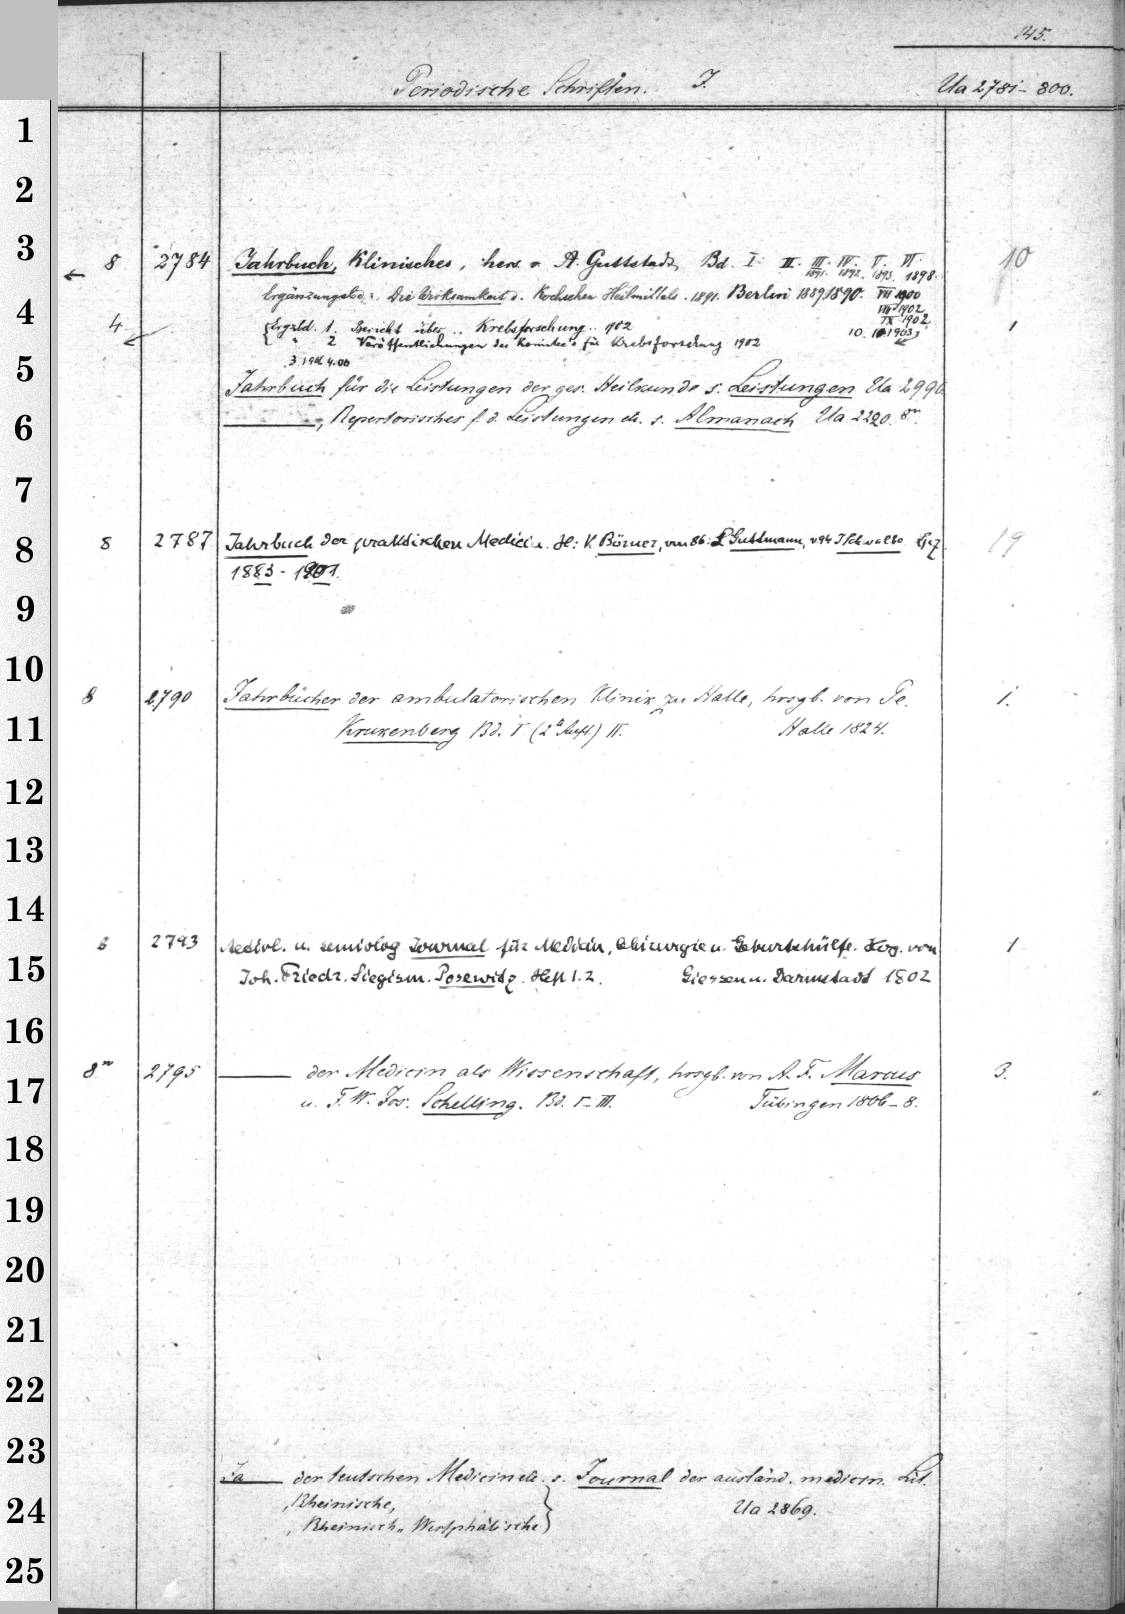 145.
Periodische Schriften. J. Ua 2781-800.
1
2
3
8 2784 Jahrbuch, Klinisches, hers. v. A. Guttstadt, Bd. I. II. III. IV. V. VI. 10
1891. 1892. 1893. 1898.
Ergänzungsbd.: Die Wirksamkeit d. Kochschen Heilmittels. 1891. Berlin 1889, 1890. VII 1900
VIII 1902
4
4 Ergzbd. 1. Bericht über .. Krebsforschung .. 1902 IX 1902 1
" 2 Veröffentlichungen des Komitee's für Krebsforschung 1902 10. 1903
3 4.06
5
Jahrbuch für die Leistungen der ges. Heilkunde s. Leistungen Ua 2990
6
, Repertorisches f. d. Leistungen etc. s. Almanach Ua 2220. 8°.
7
8
8 2787 Jahrbuch der praktischen Medicin. H: v. Börner, von 86: Guttmann, v 94 J Schwalbe Lpz. 19
1883 - 1901.
9
10
8 2790 Jahrbücher der ambulatorischen Klinik zu Halle, hrsgb. von Pe. 1.
11
Krukenberg Bd. I (2te Aufl.) II. Halle 1824.
12
13
14
8 2793 Aetiol. u. semiolog Journal für Medicin, Chirurgie u. Geburtshülfe. Hsg. von 1
15
Joh. Friedr. Siegism. Posewitz. Heft 1. 2. Giessen u. Darmstadt 1802
16
17
8° 2795 der Medicin als Wissenschaft, hrsgb. von A. F. Marcus 3.
u. F. W. Jos. Schelling. Bd. I-III. Tübingen 1806-8.
18
19
20
21
22
23
der teutschen Medicin etc. s. Journal der ausländ. medicin. Lit.
24
, Rheinische, Ua 2869.
, Rheinisch-Westphälische
25